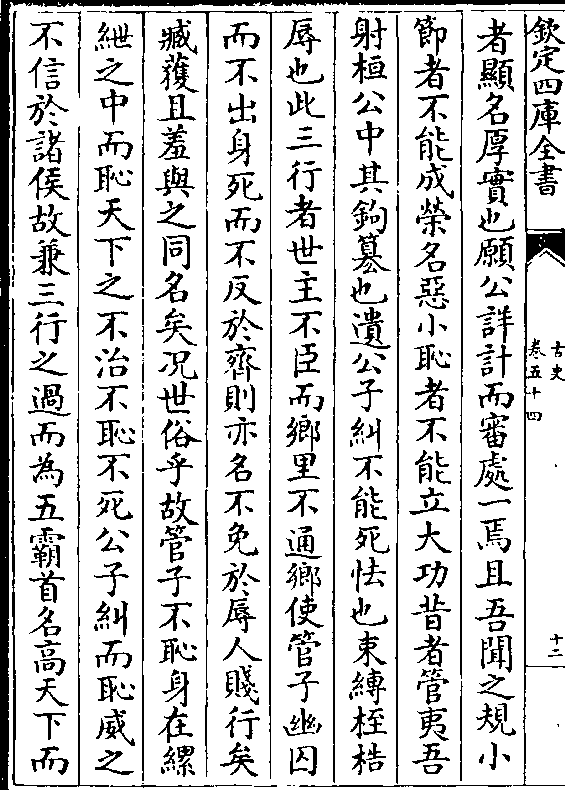 欽定四庫全書
古史
卷五十四
十二
者顯名厚實也願公詳計而審處一焉且吾聞之規小
節者不能成榮名惡小恥者不能立大功昔者管夷吾
射桓公中其鉤篡也遺公子糾不能死怯也束縛桎梏
辱也此三行者世主不臣而鄉里不通鄉使管子幽囚
而不出身死而不反於齊則亦名不免於辱人賤行矣
臧獲且羞與之同名矣况世俗乎故管子不恥身在縲
紲之中而恥天下之不治不恥不死公子糾而恥威之
不信於諸侯故兼三行之過而為五霸首名高天下而